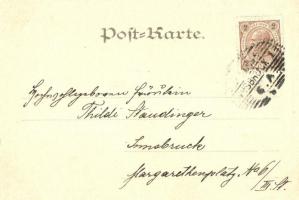 Post-Karte.
Hochwohlgeboren Fräulein
Thildi Staudinger
Innsbruck
Margarethenplatz, No 6/
III. St.